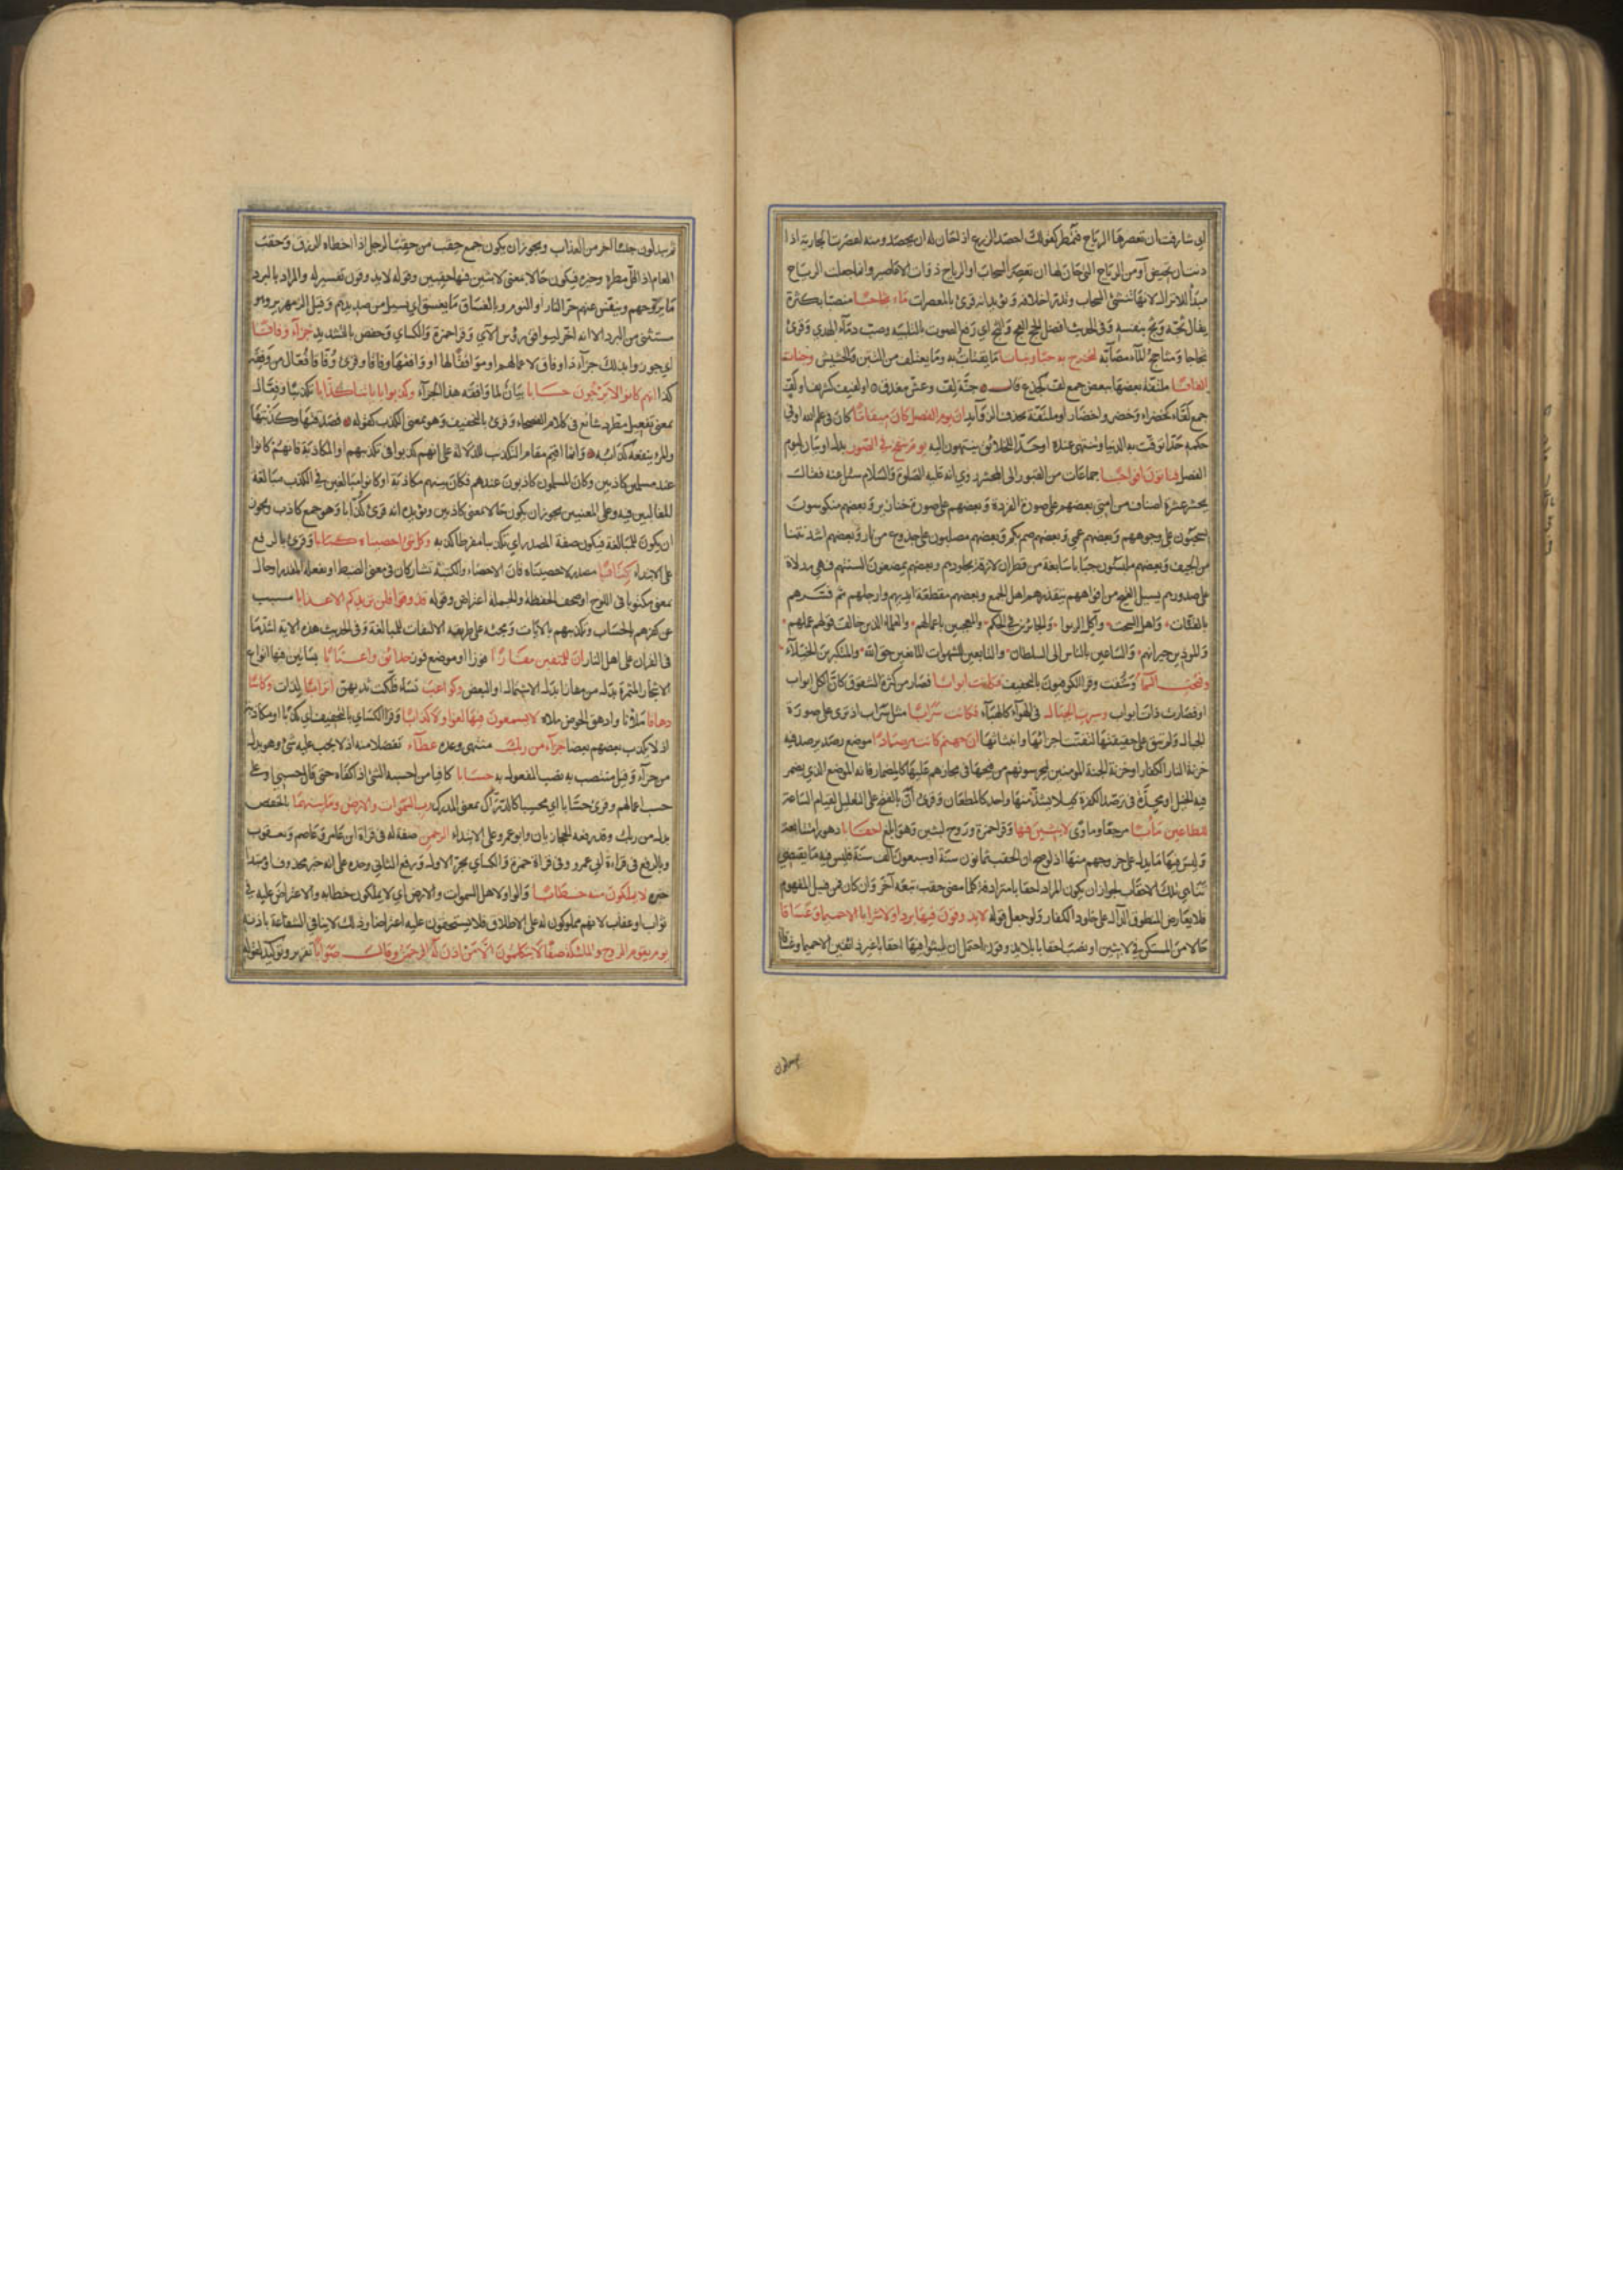 اي شارفت ان تعصرها الرياح فتمطر كقولك احصد الزرع اذا حان له ان يحصد ومنه اعصرت الجارية اذا
دنت ان تحيض او من الرياح التي حان لها ان تعصر السحاب او الرياح ذوات الاعاصير وانما جعلت الرياح
مبدأ للانزال لانها تنشئ السحاب وتدر اخلافه ويؤيده انه قرئ بالمعصرات ماء ثجاجا منصبا بكثرة
يقال ثجه وثج بنفسه وفي الحديث افضل الحج العج والثج اي رفع الصوت بالتلبية وصب دماء الهدي وقرئ
ثجاجا ومثاجج الماء مصابه لنخرج به حبا ونباتا ما يقتات به وما يعتلف من التبن والحشيش وجنات
الفافا ملتفة بعضها ببعض جمع لف كجذع قال جنة لف وعيش مغدق او لفيف كشريف او لف
جمع لفاء كخضراء وخضر واخضار او ملتفة بحذف الزوائد ان يوم الفصل كان ميقاتا كان في علم الله او في
حكمه حدا توقت به الدنيا وتنتهي عنده او حدا للخلائق ينتهون اليه يوم ينفخ في الصور بدل او بيان ليوم
الفصل فتاتون افواجا جماعات من القبور الى المحشر روي انه عليه الصلوة والسلام سئل عنه فقال
يحشر عشرة اصناف من امتي بعضهم على صورة القردة وبعضهم على صورة خنازير وبعضهم منكوسون
يسحبون على وجوههم وبعضهم عمي وبعضهم صم بكم وبعضهم مصلبون على جذوع من نار وبعضهم اشد نتنا
من الجيف وبعضهم ملبسون جبابا سابغة من قطران لازقة بجلودهم وبعضهم يمضغون السنتهم فهي مدلاة
على صدورهم يسيل القيح من افواههم يتقذرهم اهل الجمع وبعضهم مقطعة ايديهم وارجلهم ثم فسرهم
بالقتات واهل السحت وآكل الربوا والجائرين في الحكم والمعجبين باعمالهم والعلماء الذين خالف قولهم عملهم
والموذين جيرانهم والساعين بالناس الى السلطان والتابعين للشهوات المانعين حق الله والمتكبرين الخيلاء
وفتحت السماء وشقت وقرأ الكوفيون بالتخفيف فكانت ابوابا فصار من كثرة الشقوق كان الكل ابواب
او فصارت ذات ابواب وسيرت الجبال في الهواء كالهباء فكانت سرابا مثل سراب اذ ترى على صورة
الجبال ولم تبق على حقيقتها لتفتت اجزائها وانبثاثها ان جهنم كانت مرصادا موضع رصد يرصد فيه
خزنة النار الكفار او خزنة الجنة المؤمنين ليحرسونهم من فيحها في مجازهم عليها كالمضمار فانه الموضع الذي يضمر
فيه الخيل او مجدة في ترصد الكفرة كيلا يشذ منها واحد كالمطعان وقرئ ان بالفتح على التعليل لقيام الساعة
للطاغين مآبا مرجعا وماوى لابثين فيها وقرأ حمزة وروح لبثين وهو ابلغ احقابا دهورا متتابعة
وليس فيها ما يدل على خروجهم منها اذ لو صح ان الحقب ثمانون سنة او سبعون الف سنة فليس فيه ما يقتضي
تناهي تلك الاحقاب لجواز ان يكون المراد احقابا مترادفة كلما مضى حقب تبعه آخر وان كان فمن قبيل المفهوم
فلا يعارض المنطوق الدال على خلود الكفار ولو جعل قوله لا يذوقون فيها بردا ولا شرابا الا حميما وغساقا
حالا من المستكن في لابثين او نصب احقابا بلا يذوقون احتمل ان يلبثوا فيها احقابا غير ذائقين الا حميما وغساقا
ثم يبدلون جنسا آخر من العذاب ويجوز ان يكون جمع حقب من حقب الرجل اذا اخطاه الرزق وحقب
العام اذا قل مطره وخيره فيكون حالا بمعنى لابثين فيها حقبين وقوله لا يذوقون تفسير له والمراد بالبرد
ما يروحهم وينفس عنهم حر النار او النوم وبالغساق ما يغسق اي يسيل من صديدهم وقيل الزمهرير وهو
مستثنى من البرد الا انه اخر ليوافق رؤس الآي وقرأ حمزة والكسائي وحفص بالتشديد جزاء وفاقا
اي جوزوا بذلك جزاء ذا وفاق لاعمالهم او موافقا لها او وافقها وفاقا وقرئ وفاقا فعال من وفقه
كذا انهم كانوا لا يرجون حسابا بيان لما وافقه هذا الجزاء وكذبوا باياتنا كذابا تكذيبا وفعال
بمعنى تفعيل مطرد شائع في كلام الفصحاء وقرئ بالتخفيف وهو بمعنى الكذب كقوله فصدقتها وكذبتها
والمرء ينفعه كذابه وانما اقيم مقام التكذيب للدلالة على انهم كذبوا في تكذيبهم او المكاذبة فانهم كانوا
عند المسلمين كاذبين وكان المسلمون كاذبون عندهم فكان بينهم مكاذبة او كانوا مبالغين في الكذب مبالغة
المغالبين فيه وعلى المعنيين يجوز ان يكون حالا بمعنى كاذبين ويؤيده انه قرئ كذابا وهو جمع كاذب ويجوز
ان يكون للمبالغة فيكون صفة المصدر اي تكذيبا مفرطا كذبه وكل شئ احصيناه كتابا وقرئ بالرفع
على الابتداء كتابا مصدر لاحصيناه فان الاحصاء والكتبة تشاركان في معنى الضبط او لفعله المقدر او حال
بمعنى مكتوبا في اللوح او صحف الحفظة والجملة اعتراض وقوله فذوقوا فلن نزيدكم الا عذابا مسبب
عن كفرهم بالحساب وتكذيبهم بالآيات ومجيئه على طريقة الالتفات للمبالغة وفي الحديث هذه الاية اشد ما
في القران على اهل النار ان للمتقين مفازا فوزا او موضع فوز حدائق واعنابا بساتين فيها انواع
الاشجار المثمرة بدل من مفازا بدل الاشتمال او البعض وكواعب نساء فلكت ثديهن اترابا لدات وكاسا
دهاقا ملآنا وادهق الحوض ملاه لا يسمعون فيها لغوا ولا كذابا وقرأ الكسائي بالتخفيف اي كذبا او مكاذبة
اذ لا يكذب بعضهم بعضا جزاء من ربك بمقتضى وعده عطاء تفضلا منه اذ لا يجب عليه شئ وهو بدل
من جزاء وقيل منتصب به نصب المفعول به حسابا كافيا من احسبه الشئ اذا كفاه حتى قال حسبي او على
حسب اعمالهم وقرئ حسابا اي محسبا كالدراك بمعنى المدرك رب السموات والارض وما بينهما بالخفض
بدل من ربك وقد رفعه الحجازيان وابو عمرو على الابتداء الرحمن صفة له في قراة ابن عامر وعاصم ويعقوب
وبالرفع في قراءة ابي عمرو وفي قراة حمزة والكسائي بجر الاول ورفع الثاني وحده على انه خبر محذوف او مبتدأ
خبره لا يملكون منه خطابا والواو لاهل السموات والارض اي لا يملكون خطابه والاعتراض عليه في
ثواب او عقاب لانهم مملوكون له على الاطلاق فلا يستحقون عليه اعتراضا وذلك لا ينافي الشفاعة باذنه
يوم يقوم الروح والملئكة صفا لا يتكلمون الا من اذن له الرحمن وقال صوابا تقرير وتوكيد لقوله